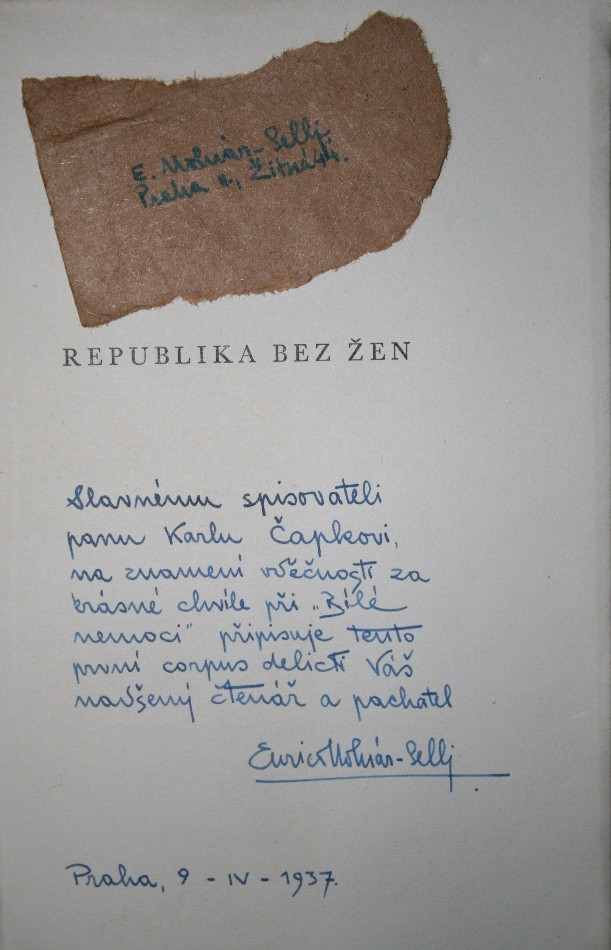 E. Molnár-Sellj.
Praha II., Žitná 44.
REPUBLIKA BEZ ŽEN
Slavnému spisovateli
panu Karlu Čapkovi,
na znamení vděčnosti za
krásné chvíle při „Bílé
nemoci" připisuje tento
první corpus delicti Váš
nadšený čtenář a pachatel
Molnár-Sellj
Praha, 9 - IV - 1937.